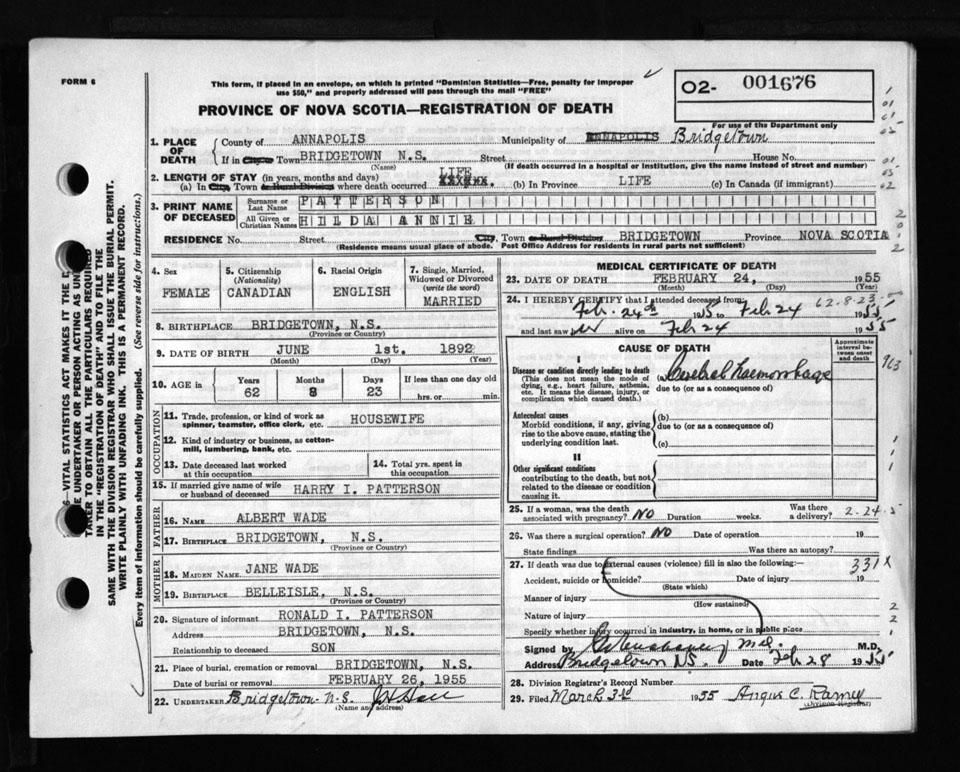 FORM 6
This form, if placed in an envelope, on which is printed "Dominion Statistics—Free, penalty for improper
use $50," and properly addressed will pass through the mail "FREE"
O2- 001676
For use of the Department only
PROVINCE OF NOVA SCOTIA—REGISTRATION OF DEATH
1. PLACE OF DEATH
County of ANNAPOLIS Municipality of ANNAPOLIS Bridgetown
If in City or Town BRIDGETOWN N.S. Street House No.
(Name) (If death occurred in a hospital or institution, give the name instead of street and number)
2. LENGTH OF STAY (in years, months and days)
(a) In City, Town or Rural Division where death occurred LIFE (b) In Province LIFE (c) In Canada (if immigrant)
3. PRINT NAME OF DECEASED
Surname or Last Name PATTERSON
All Given or Christian Names HILDA ANNIE
RESIDENCE No. Street City, Town or Rural Division BRIDGETOWN Province NOVA SCOTIA
(Residence means usual place of abode. Post Office Address for residents in rural parts not sufficient)
4. Sex FEMALE
5. Citizenship (Nationality) CANADIAN
6. Racial Origin ENGLISH
7. Single, Married, Widowed or Divorced (write the word) MARRIED
8. BIRTHPLACE BRIDGETOWN, N.S.
(Province or Country)
9. DATE OF BIRTH JUNE 1st. 1892
(Month) (Day) (Year)
10. AGE in Years 62 Months 8 Days 23 If less than one day old hrs. or min.
OCCUPATION
11. Trade, profession, or kind of work as spinner, teamster, office clerk, etc. HOUSEWIFE
12. Kind of industry or business, as cotton-mill, lumbering, bank, etc.
13. Date deceased last worked at this occupation
14. Total yrs. spent in this occupation
15. If married give name of wife or husband of deceased HARRY I. PATTERSON
FATHER
16. NAME ALBERT WADE
17. BIRTHPLACE BRIDGETOWN, N.S.
(Province or Country)
MOTHER
18. MAIDEN NAME JANE WADE
19. BIRTHPLACE BELLEISLE, N.S.
(Province or Country)
20. Signature of informant RONALD I. PATTERSON
Address BRIDGETOWN, N.S.
Relationship to deceased SON
21. Place of burial, cremation or removal BRIDGETOWN, N.S.
Date of burial or removal FEBRUARY 26, 1955
22. UNDERTAKER Bridgetown N.S.
(Name and address)
MEDICAL CERTIFICATE OF DEATH
23. DATE OF DEATH FEBRUARY 24, 1955
(Month) (Day) (Year)
24. I HEREBY CERTIFY that I attended deceased from: 62-8-23
Feb. 24th 1955 to Feb 24 1955
and last saw her alive on Feb 24 1955
CAUSE OF DEATH
Approximate interval between onset and death
I
Disease or condition directly leading to death
(This does not mean the mode of dying, e.g., heart failure, asthenia, etc. It means the disease, injury, or complication which caused death.)
(a) Cerebral haemorrhage
due to (or as a consequence of)
Antecedent causes
Morbid conditions, if any, giving rise to the above cause, stating the underlying condition last.
(b)
due to (or as a consequence of)
(c)
II
Other significant conditions
contributing to the death, but not related to the disease or condition causing it.
25. If a woman, was the death associated with pregnancy? NO Duration weeks. Was there a delivery? 2-24-5
26. Was there a surgical operation? NO Date of operation 19
State findings Was there an autopsy?
27. If death was due to external causes (violence) fill in also the following:— 331X
Accident, suicide or homicide? Date of injury 19
(State which)
Manner of injury
(How sustained)
Nature of injury
Specify whether injury occurred in industry, in home, or in public place
Signed by M.D.
Address Bridgetown NS. Date Feb 28 1955
28. Division Registrar's Record Number
29. Filed March 3rd 1955 Angus C. Ramey
(Division Registrar)
VITAL STATISTICS ACT MAKES IT THE D
E UNDERTAKER OR PERSON ACTING AS UN
TAKER TO OBTAIN ALL THE PARTICULARS REQUIRE
IN THE "REGISTRATION OF DEATH" AND TO FILE THE
SAME WITH THE DIVISION REGISTRAR WHO SHALL ISSUE THE BURIAL PERMIT.
WRITE PLAINLY WITH UNFADING INK. THIS IS A PERMANENT RECORD.
Every item of information should be carefully supplied. (See reverse side for instructions.)